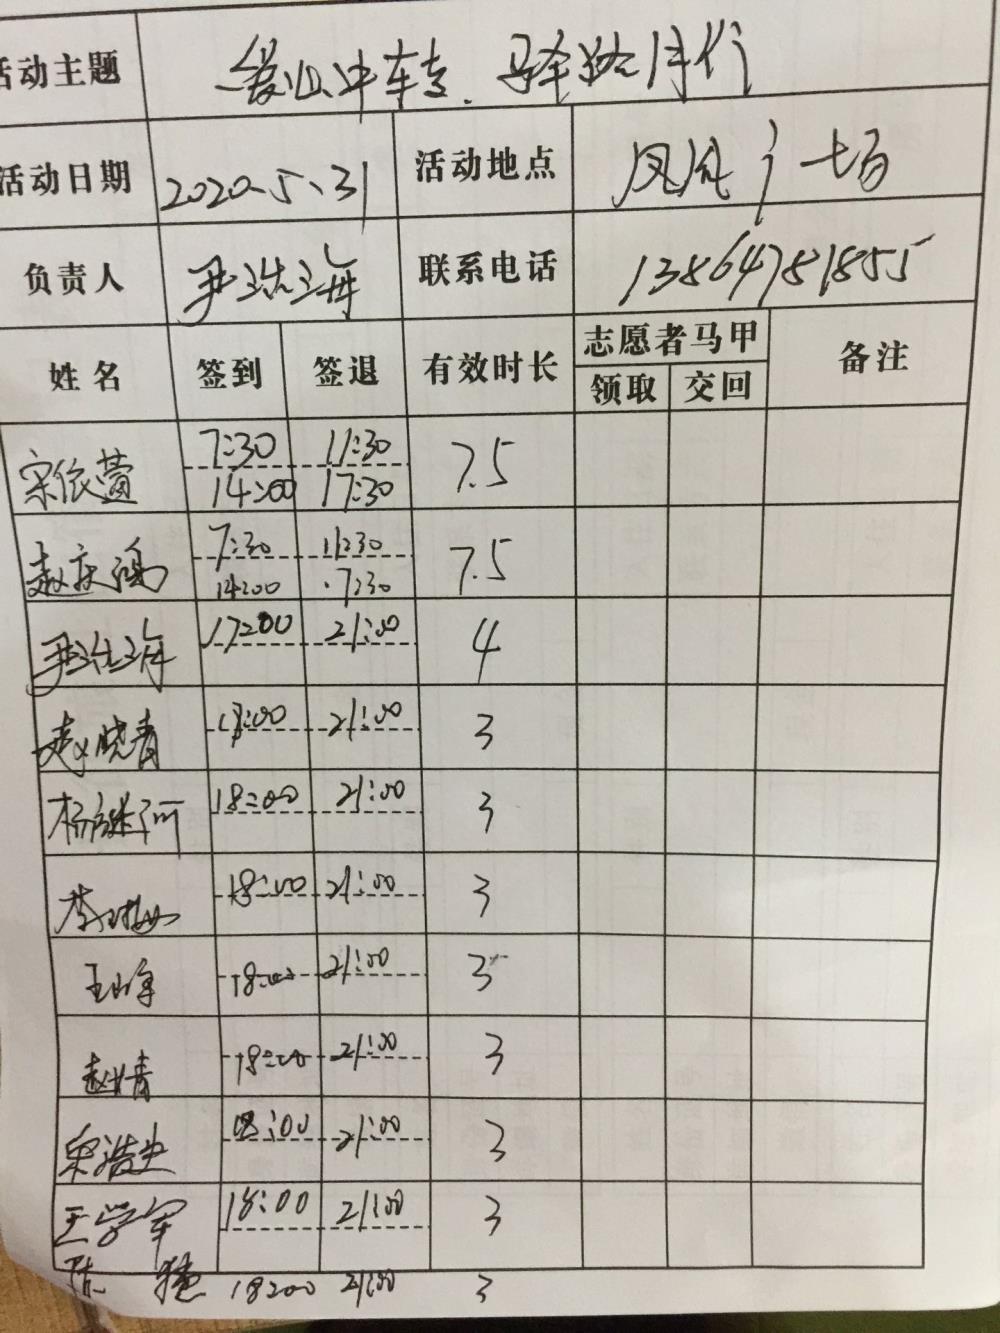 活动主题 爱心中转、驿路同行
活动日期 2020.5.31 活动地点 凤凰广场
负责人 尹浩海 联系电话 13864781855
姓名 签到 签退 有效时长 志愿者马甲 备注
领取 交回
宋依萱 7:30 11:30 7.5
14:00 17:30
赵庆鸿 7:30 11:30 7.5
14:00 17:30
尹浩海 17:00 21:00 4
赵晓青 18:00 21:00 3
杨继河 18:00 21:00 3
18:00 21:00 3
王山峰 18:00 21:00 3
18:00 21:00 3
宋浩史 18:00 21:00 3
王学军 18:00 21:00 3
陈 18:00 21:00 3